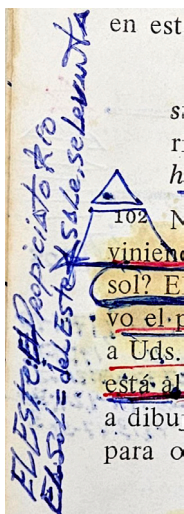 en est
102 N
viniend
sol? E
vo el p
a Uds.
está al
a dibuj
para o
EL ESTE: EL PROPICIATORIO
El Sol = del Este Sale, se levanta